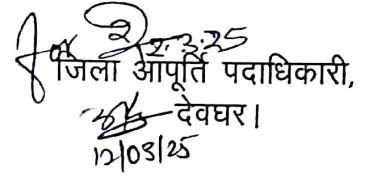 2.3.25
जिला आपूर्ति पदाधिकारी,
देवघर।
12/03/25